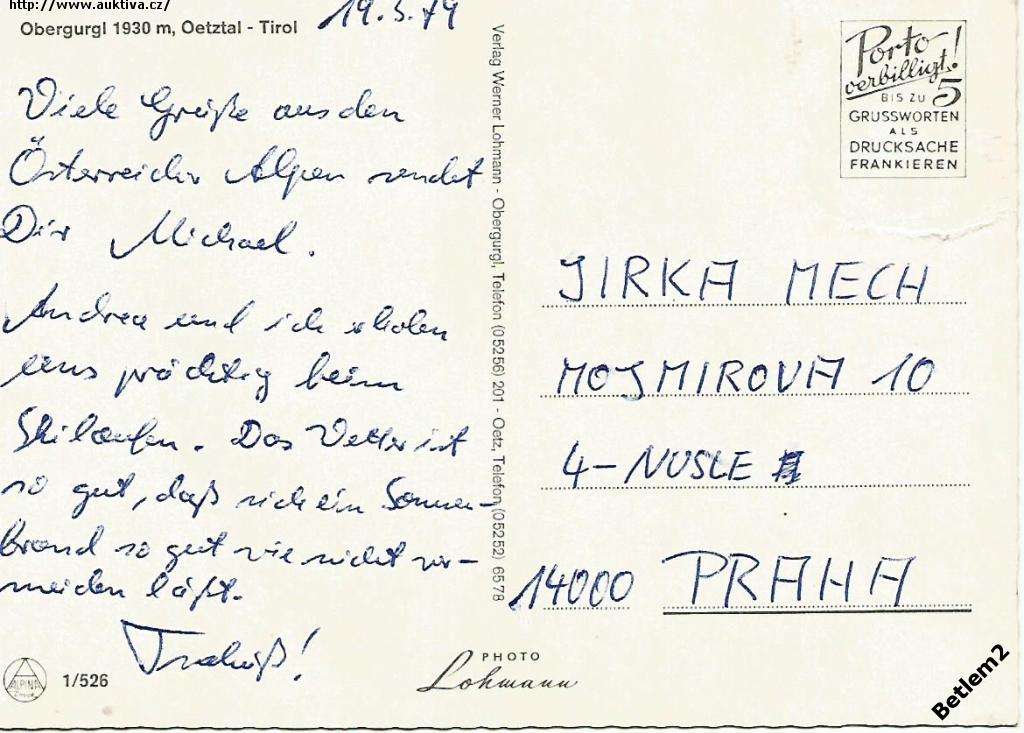 http://www.auktiva.cz/
Obergurgl 1930 m, Oetztal - Tirol
19.3.79
Viele Grüße aus den
Österreichr Alpen sendet
Dir Michael.
Andrea und ich erholen
uns prächtig beim
Skilaufen. Das Wetter ist
so gut, daß sich ein Sonnen-
brand so gut wie nicht ver-
meiden läßt.
Tschüß!
ALPINA
1/526
Verlag Werner Lohmann - Obergurgl, Telefon (05256) 201 - Oetz, Telefon (05252) 6578
PHOTO
Lohmann
Porto
verbilligt!
BIS ZU 5
GRUSSWORTEN
ALS
DRUCKSACHE
FRANKIEREN
JIRKA MECH
MOJMIROVA 10
4-NUSLE
14000 PRAHA
Betlem2